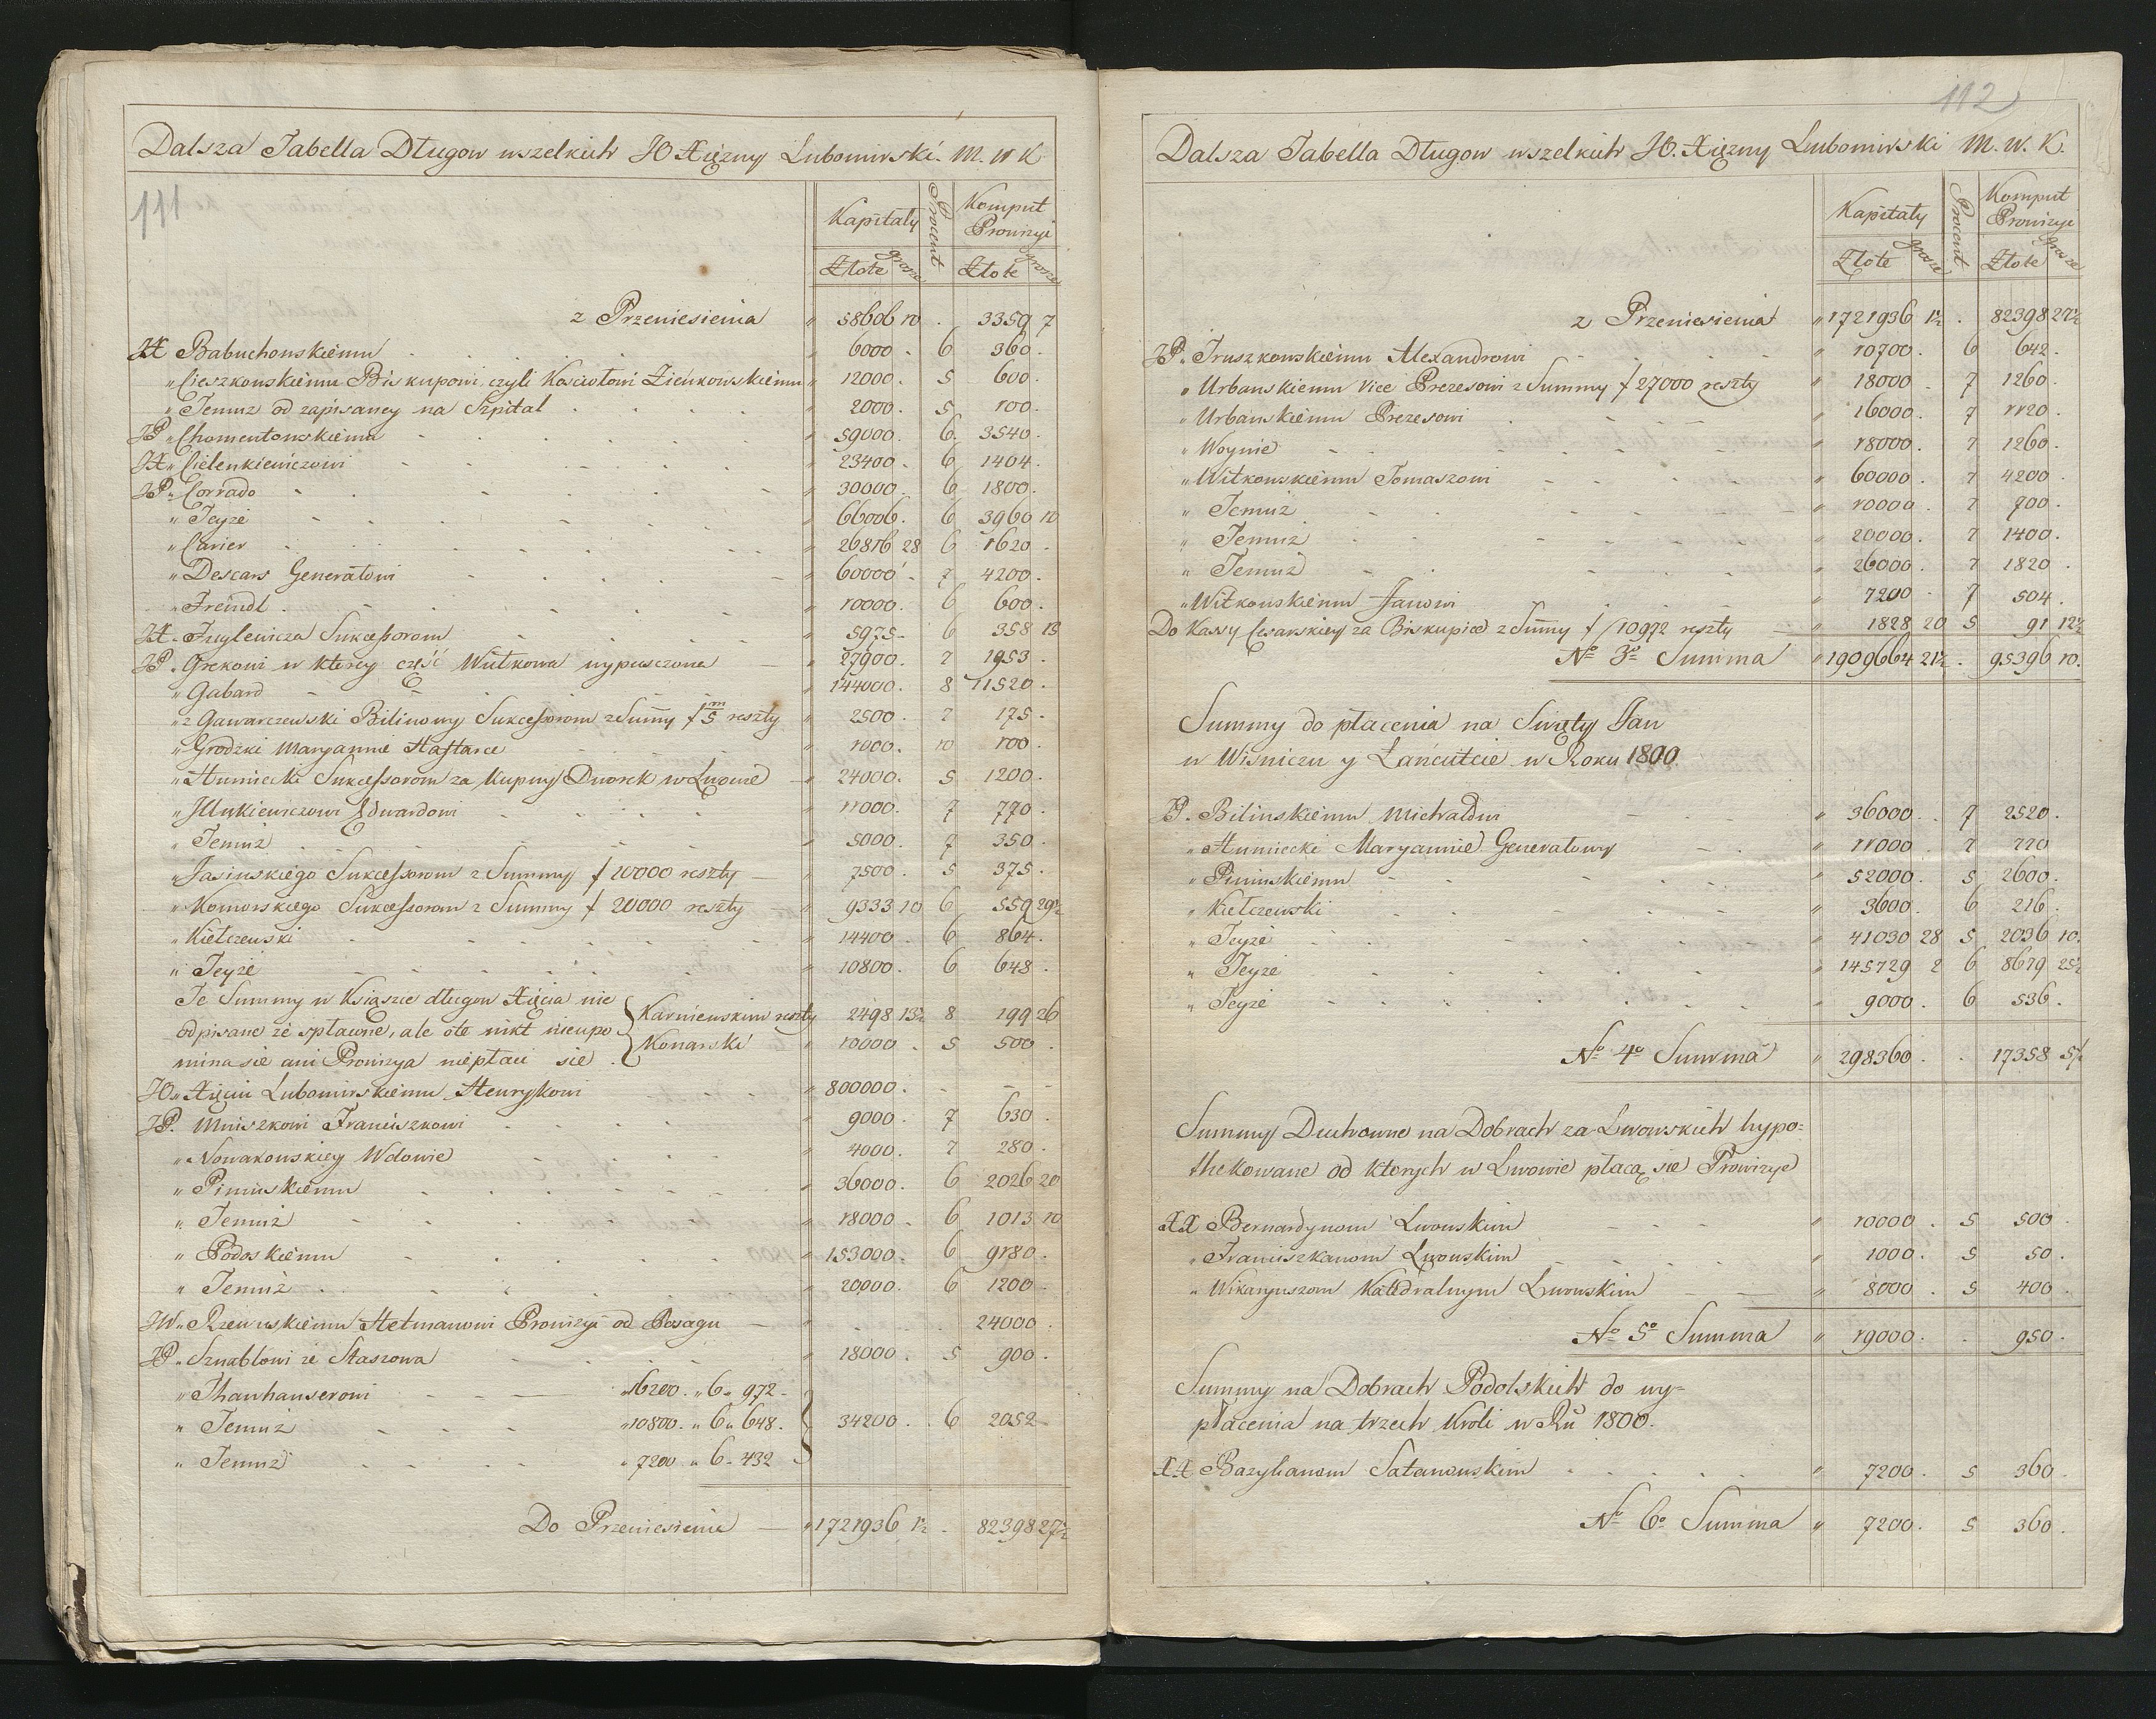 Dalsza Tabella Długow wszelkich JO Xiężny Lubomirski. M. W K
111
Kapitały Procent Komput Prowizyi
Złote grosze Złote grosze
z Przeniesienia " 58606 10 . 3359 7
JX Babuchowskiemu " 6000 . 6 360 .
" Cieszkowskiemu Biskupowi, czyli Kosciołowi Zieńkowskiemu " 12000 . 5 600 .
" Temuz od zapisaney na Szpital " 2000 . 5 100 .
JP " Chomentowskiemu " 59000 . 6 3540 .
JX " Cielenkiewiczowi " 23400 . 6 1404 .
JP " Corrado " 30000 . 6 1800 .
" Teyże " 66006 . 6 3960 10
" Carier " 26816 28 6 1620 .
" Descars Generałowi " 60000 . 7 4200 .
" Freindl " 10000 . 6 600 .
JX " Fuglewicza Sukcessorom " 5975 - 6 358 15
JP " Grekowi w ktorey część Witkowa wypuszczona " 27900 . 7 1953 .
" Gabard " 144000 . 8 11520 .
" z Gawarczewski Bilinowy Sukcessorom z Sum̄y f 5 m reszty " 2500 . 7 175 .
" Grodzki Maryannie Haftarce " 1000 . 10 100 .
" Humiecki Sukcessorom za kupny Dworek w Luxurze " 24000 . 5 1200 .
" Jllukiewiczowi Edwardowi " 11000 . 7 770 .
" Temuz " 5000 . 7 350 .
" Jasinskiego Sukcessorom z Summy f 10000 reszty " 7500 . 5 375 .
" Komorskiego Sukcessorom z Summy f 20000 reszty " 9333 10 6 559 29½
" Kiełczewski " 14400 . 6 864 .
" Teyże " 10800 . 6 648 .
Te Summy w Książce długow Xięcia nie
odpisane że spławne, ale o te nikt nieupo
mina się ani Prowizya niepłaci się
Karniewskim reszty 2498 13½ 8 199 26
Konarski 10000 . 5 500 .
JO " Xięciu Lubomirskiemu Henrykowi " 800000 . - - -
JP. Mniszkowi Franciszkowi " 9000 . 7 630 .
" Nowakowskiey Wdowie " 4000 . 7 280 .
" Pininskiemu " 36000 . 6 2026 20
" Temuż " 18000 . 6 1013 10
" Podoskiemu " 153000 . 6 9180 .
" Temuż " 20000 . 6 1200 .
JW " Rzewuskiemu Hetmanowi Prowizyi od Posagu " . . 24000 .
JP " Sznablowi ze Staszowa " 18000 . 5 900 .
" Thanhauserowi " 16200 . " 6 " 972 -
" Temuż " 10800 . " 6 " 648 . 34200 . 6 2052
" Temuż " 7200 " 6 - 432
Do Przeniesienia " 1721936 1½ . 82398 27½
112
Dalsza Tabella Długow wszelkich JO. Xiężny Lubomirski M. W. K.
Kapitały Procent Komput Prowizyi
Złote grosze Złote grosze
z Przeniesienia " 1721936 1½ . 82398 27½
JP. Truszkowskiemu Alexandrowi " 10700 . 6 642 .
" Urbanskiemu Vice Prezesowi z Summy f 27000 reszty " 18000 . 7 1260 .
" Urbanskiemu Prezesowi " 16000 . 7 1120 .
" Woynie " 18000 . 7 1260 .
" Witkowskiemu Tomaszowi " 60000 . 7 4200 .
" Temuż " 10000 . 7 700 .
" Temuż " 20000 . 7 1400 .
" Temuż " 26000 . 7 1820 .
" Witkowskiemu Janowi " 7200 . 7 504 .
Do Kassy Cesarskiey za Biskupice z Sum̄y f 10972 reszty " 1828 20 5 91 12½
No 3o Summa " 1909664 21½ . 95396 10.
Summy do płacenia na Swięty Jan
w Wiśniczu y Łańcucie w Roku 1800
JP. Bilinskiemu Michałowi " 36000 . 7 2520 .
" Humiecki Maryannie Generałowy " 11000 . 7 770
" Pininskiemu " 52000 . 5 2600 .
" Kiełczewski " 3600 . 6 216 .
" Teyże " 41030 28 5 2036 10.
" Teyże " 145729 2 6 8679 25½
" Teyże " 9000 . 6 536 .
No 4o Summa " 298360 . . 17358 5½
Summy Duchowne na Dobrach za Lwowskich hypo=
thekowane od ktorych w Lwowie płacą się Prowizye
XX Bernardynom Lwowskim " 10000 . 5 500 .
" Franciszkanom Lwowskim " 1000 . 5 50 .
" Wikaryuszom Katedralnym Lwowskim " 8000 . 5 400 .
No 5o Summa " 19000 . . 950 .
Summy na Dobrach Podolskich do wy=
płacenia na trzech Kroli w Ru 1800.
XX Bazylianom Satanowskim " 7200 . 5 360 .
No 6o Summa " 7200 . 5 360 .